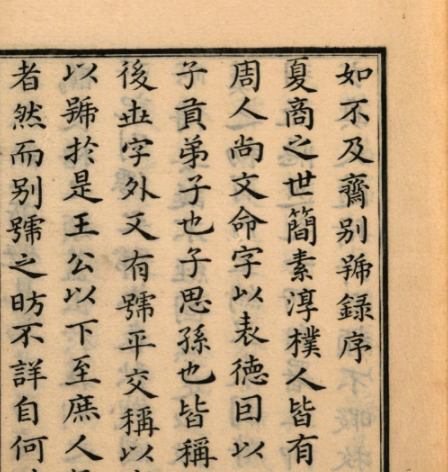 如不及齋别號録序
夏商之世簡素淳樸人皆有
周人尚文命字以表德回以
子貢弟子也子思孫也皆稱
後世字外又有號平交稱以
以號於是王公以下至庶人
者然而别號之昉不詳自何